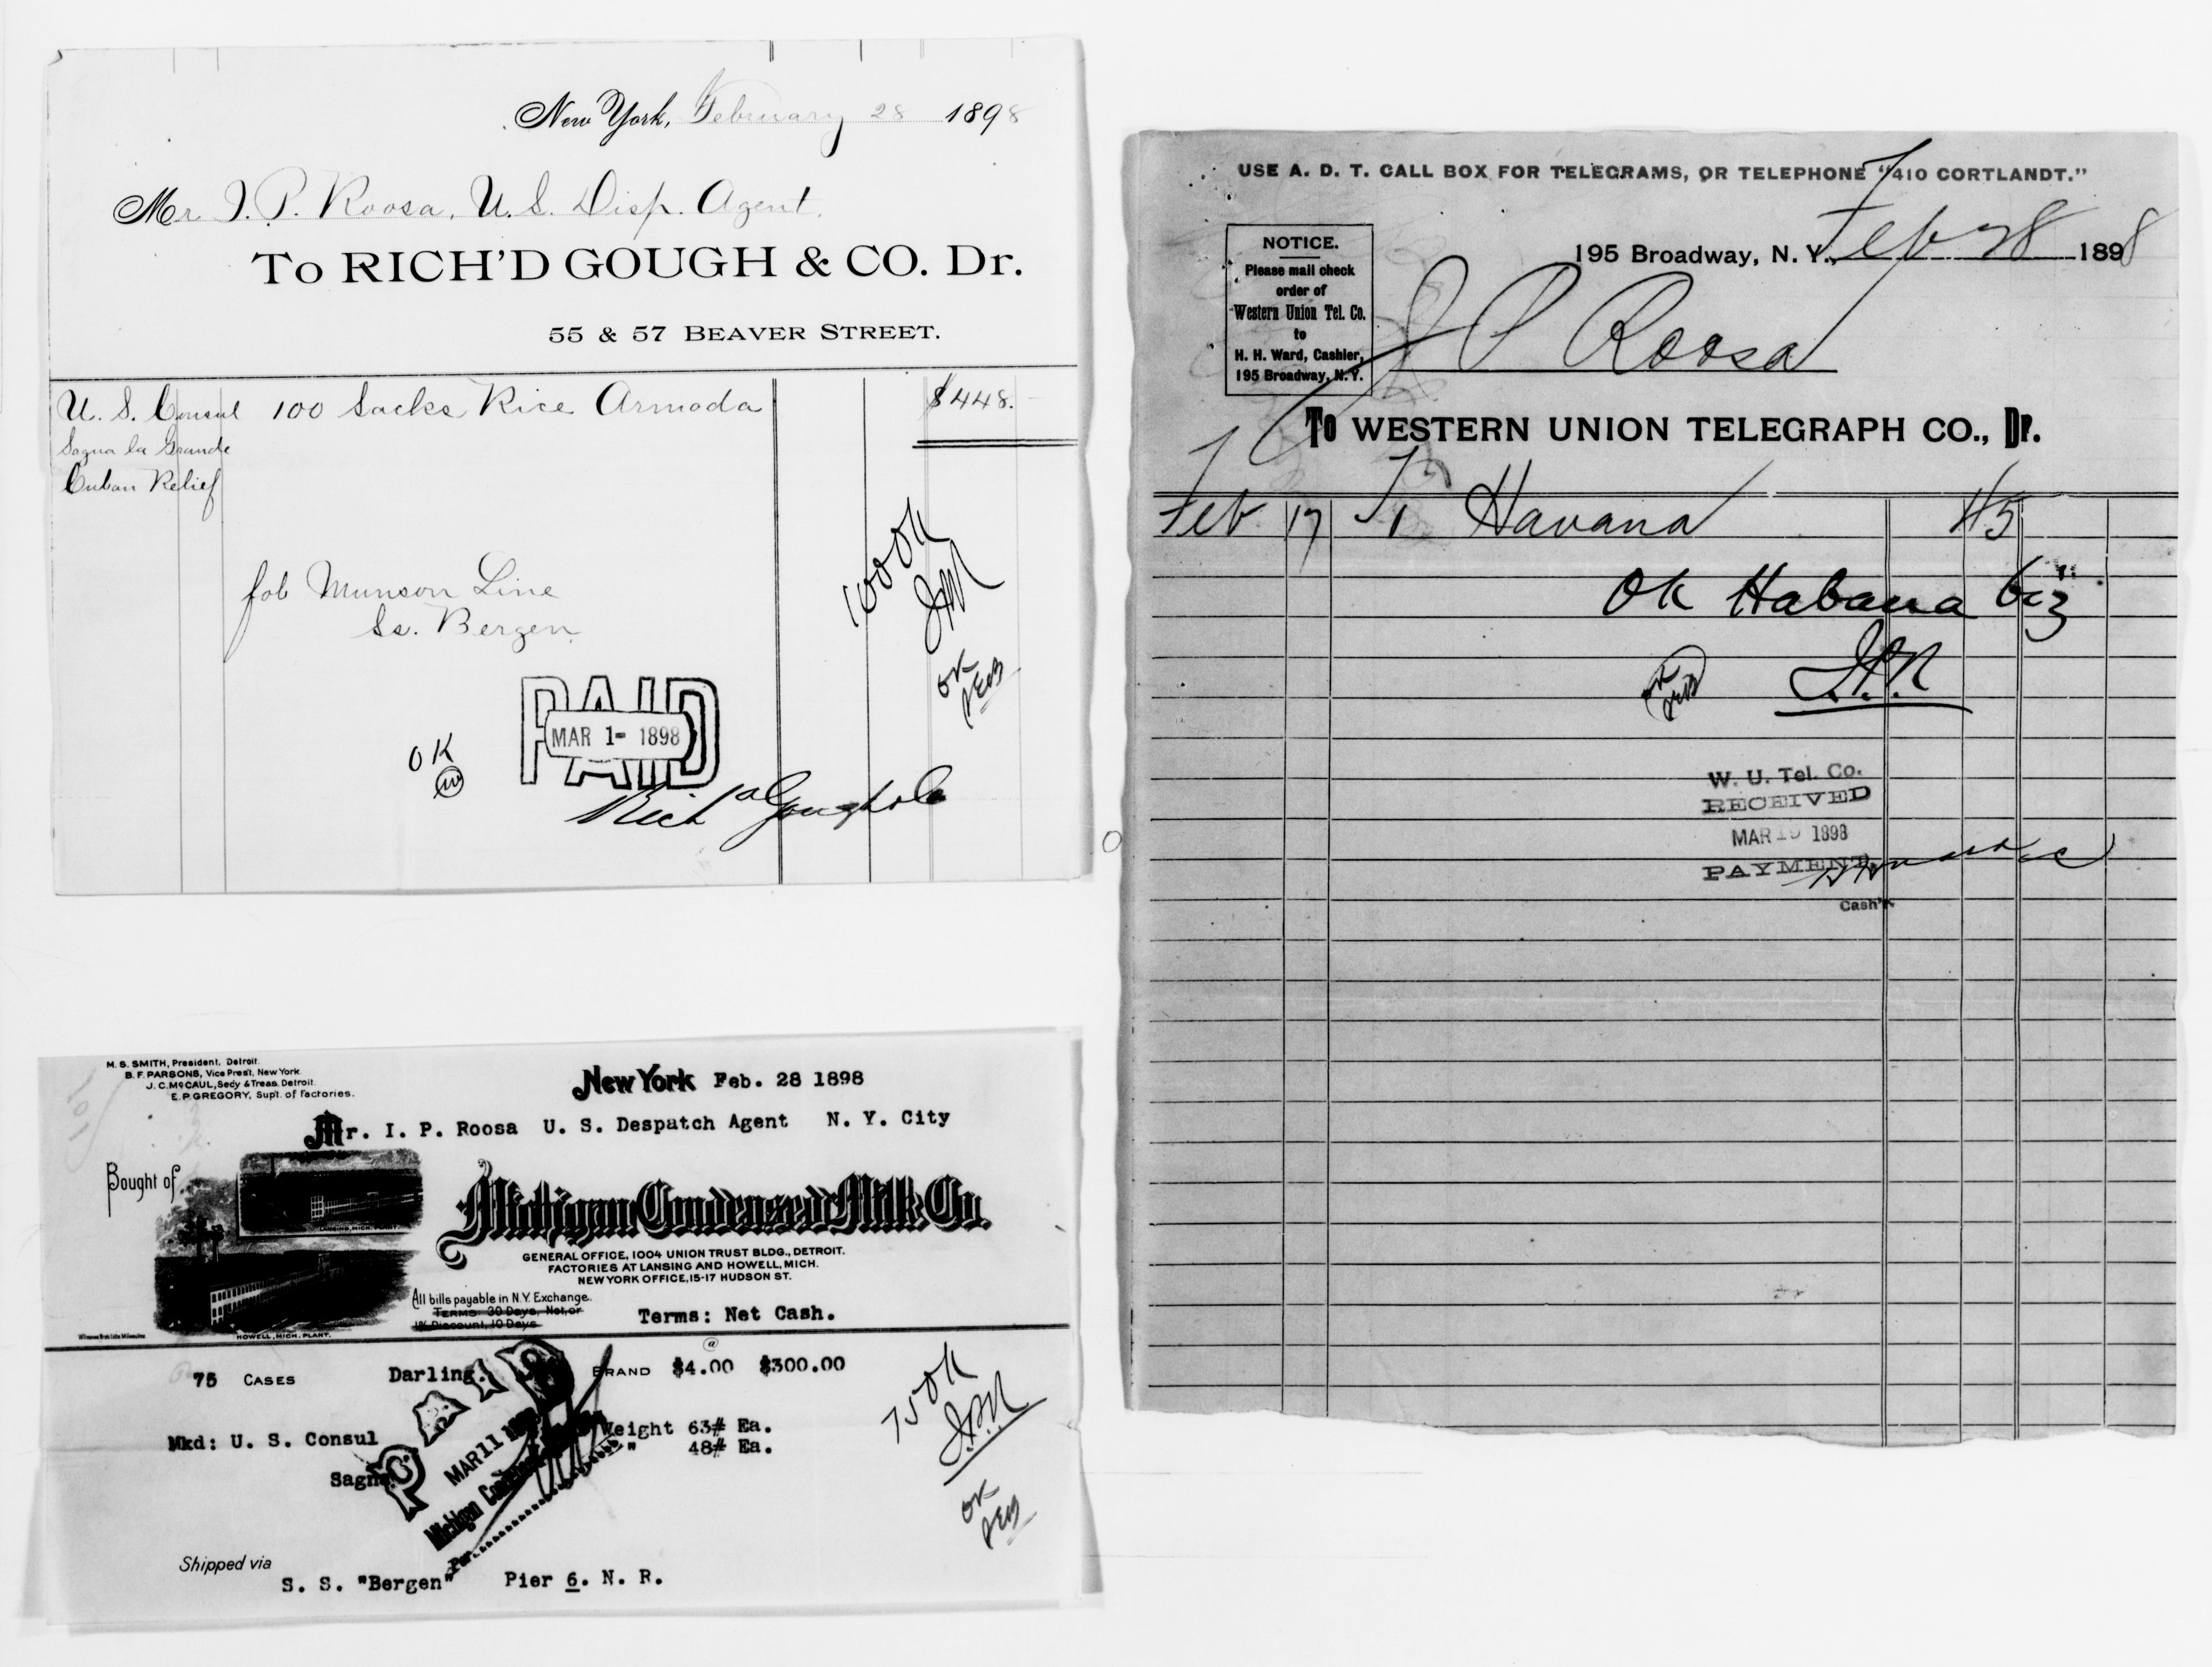 New York, February 28 1898
Mr I. P. Roosa, U. S. Disp. Agent.
To RICH'D GOUGH & CO. Dr.
55 & 57 BEAVER STREET.
U. S. Consul 100 Sacks Rice Armada $448.
Sagua la Grande
Cuban Relief
fob Munson Line
Ss. Bergen
100 OK
IPR
OK
OK
PAID
MAR 1- 1898
Rich'd Gough & Co
M. S. SMITH, President, Detroit.
B. F. PARSONS, Vice Pres't, New York.
J. C. McCAUL, Secy & Treas. Detroit.
E. P. GREGORY, Supt. of Factories.
New York Feb. 28 1898
Mr. I. P. Roosa U. S. Despatch Agent N. Y. City
Bought of
Michigan Condensed Milk Co.
LANSING, MICH. PLANT.
GENERAL OFFICE, 1004 UNION TRUST BLDG., DETROIT.
FACTORIES AT LANSING AND HOWELL, MICH.
NEW YORK OFFICE, 15-17 HUDSON ST.
All bills payable in N.Y. Exchange.
TERMS: 30 Days, Net, or
1% Discount, 10 Days
Terms: Net Cash.
HOWELL, MICH. PLANT.
@
75 CASES Darling. BRAND $4.00 $300.00
Mkd: U. S. Consul Weight 63# Ea.
" 48# Ea.
Sagua
PAID
MAR 11
Michigan
Per
75 OK
IPR
OK
Shipped via
S. S. "Bergen" Pier 6. N. R.
USE A. D. T. CALL BOX FOR TELEGRAMS, OR TELEPHONE "410 CORTLANDT."
NOTICE.
Please mail check
order of
Western Union Tel. Co.
to
H. H. Ward, Cashier,
195 Broadway, N. Y.
195 Broadway, N. Y., Feb 28 1898
I P Roosa
To WESTERN UNION TELEGRAPH CO., Dr.
Feb 17 To Havana
OK Habana biz
I.P.R
OK
W. U. Tel. Co.
RECEIVED
MAR 1898
PAYMENT,
Cash'r